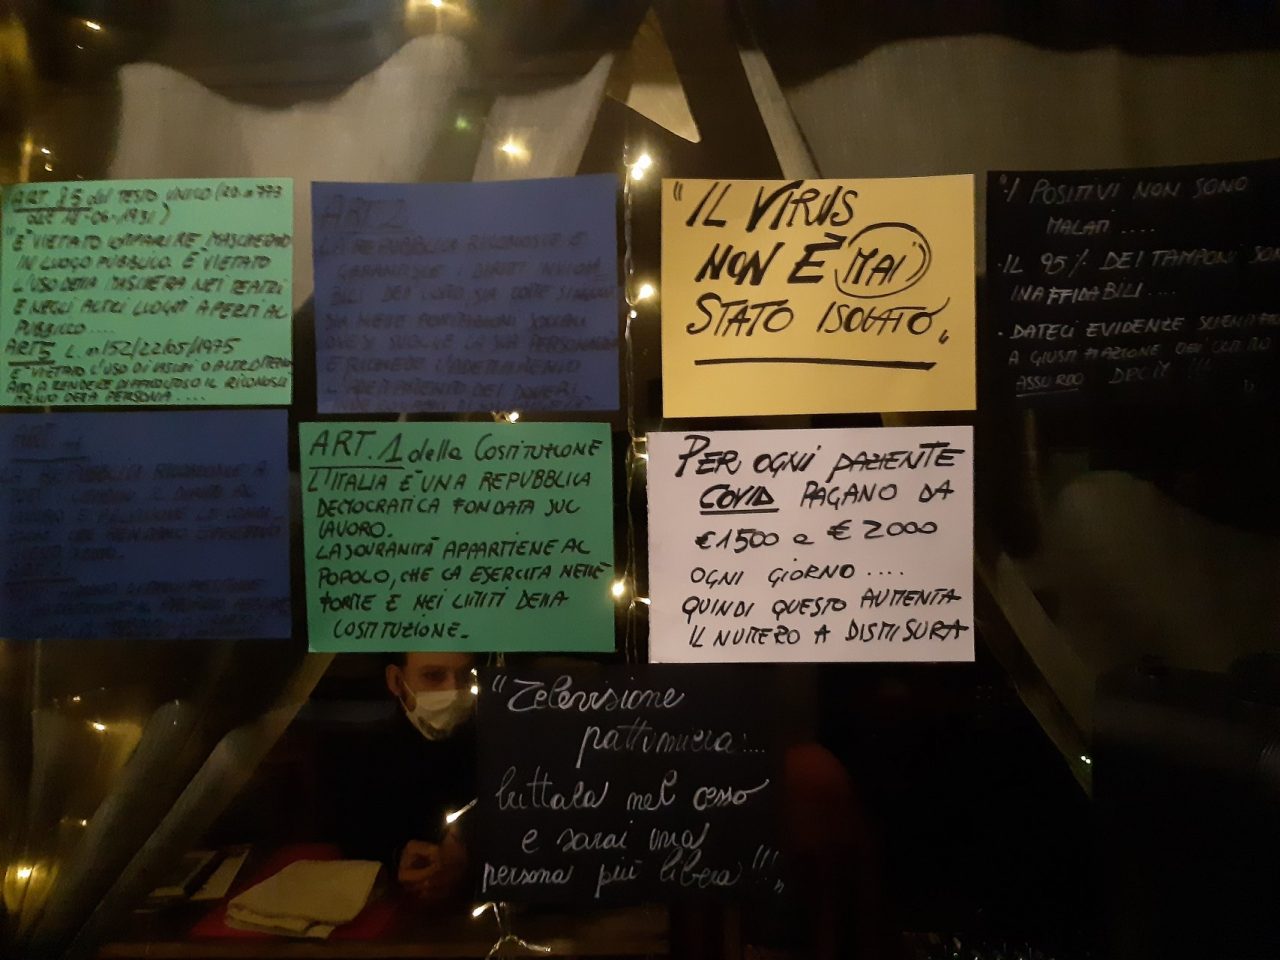 ART. 85 del TESTO UNICO (R.D. n 773
DEL 18-06-1931)
"E' VIETATO COMPARIRE MASCHERATO
IN LUOGO PUBBLICO. E' VIETATO
L'USO DELLA MASCHERA NEI TEATRI
E NEGLI ALTRI LUOGHI APERTI AL
PUBBLICO....
ART 5 L. n 152/22/05/1975
E' VIETATO L'USO DI CASCHI O ALTRO
ATTO A RENDERE DIFFICOLTOSO IL RICONOSCI
MENTO DELLA PERSONA....
ART. 2
LA REPUBBLICA RICONOSCE E
GARANTISCE I DIRITTI INVIOLA
BILI DELL'UOMO, SIA COME SINGOLO
SIA NELLE FORMAZIONI SOCIALI
OVE SI SVOLGE LA SUA PERSONALITÀ
E RICHIEDE L'ADEMPIMENTO
DEI DOVERI
"IL VIRUS
NON È MAI
STATO ISOLATO"
"I POSITIVI NON SONO
MALATI....
· IL 95% DEI TAMPONI SON
INAFFIDABILI....
· DATECI EVIDENZE SCIENTIF
A GIUSTIFICAZIONE DELL'ULTIMO
ASSURDO DPCM !!!"
ART.
LA REPUBBLICA RICONOSCE A
TUTTI I CITTADINI IL DIRITTO AL
LAVORO E
ART. 1 della COSTITUZIONE
L'ITALIA È UNA REPUBBLICA
DEMOCRATICA FONDATA SUL
LAVORO.
LA SOVRANITÀ APPARTIENE AL
POPOLO, CHE LA ESERCITA NELLE
FORME E NEI LIMITI DELLA
COSTITUZIONE.
PER OGNI PAZIENTE
COVID PAGANO DA
€1500 a € 2000
OGNI GIORNO....
QUINDI QUESTO AUMENTA
IL NUMERO A DISMISURA
"Televisione
pattumiera....
buttala nel cesso
e sarai una
persona più libera!!!"